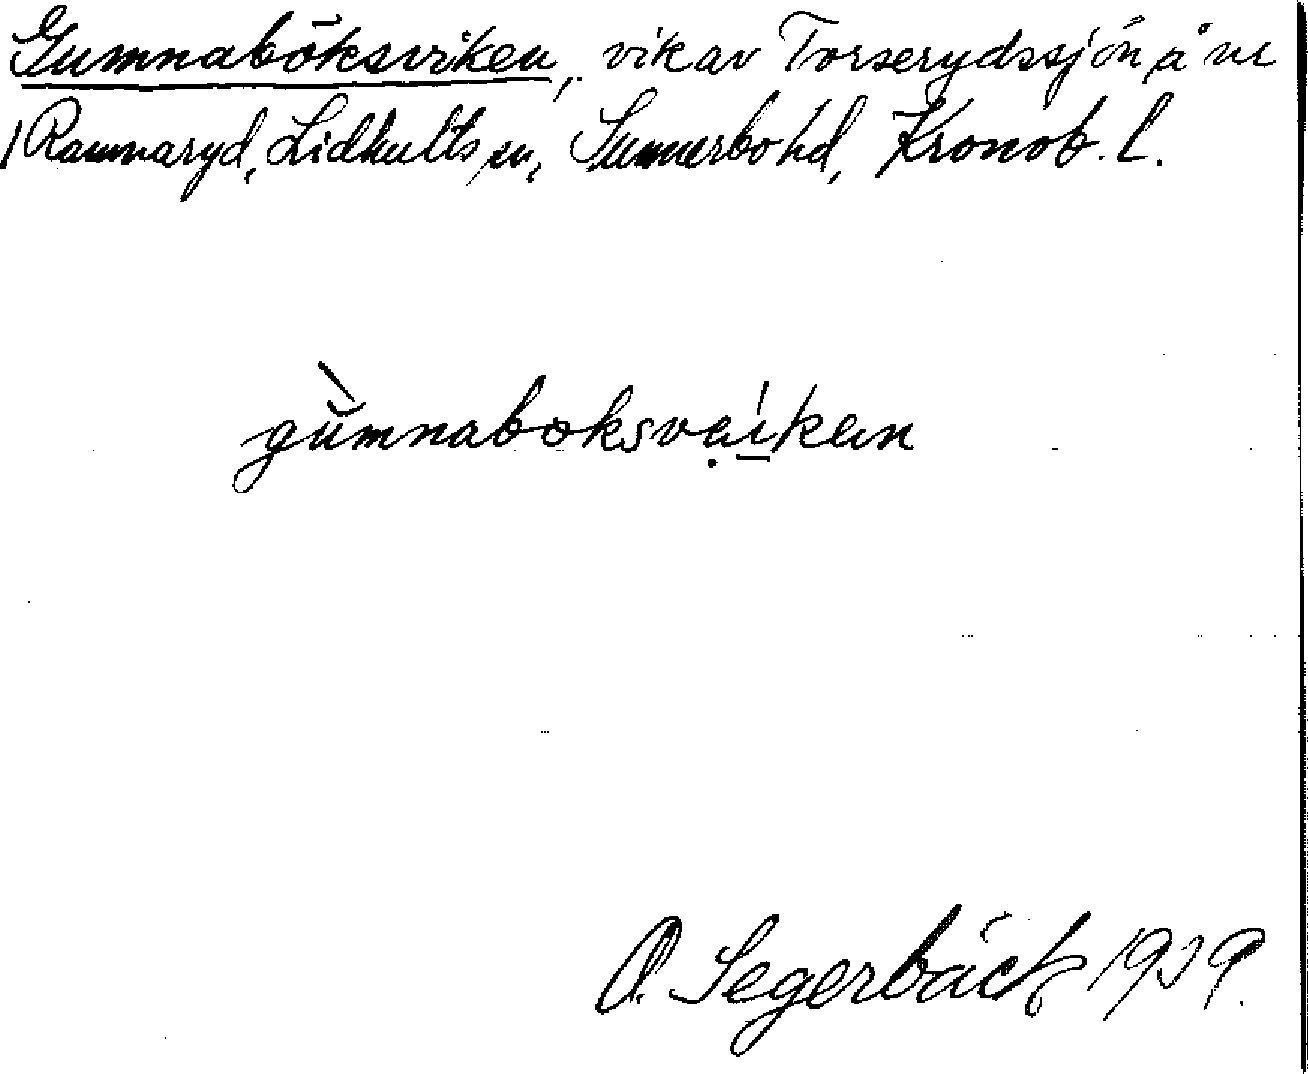 Gumnaböksviken, vik av Torserydssjön å nr
1 Ramnaryd, Lidhults sn, Sunnerbo hd, Kronob. l.
gùmnaboksvaíken
O. Segerbäck 1939.